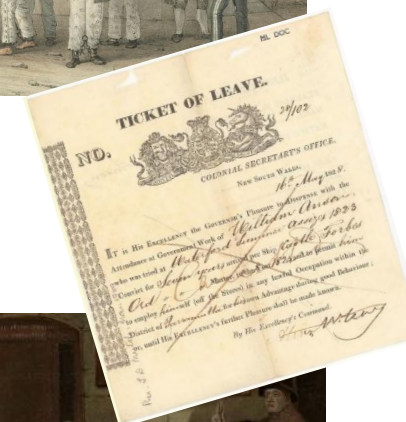 ML DOC
TICKET OF LEAVE.
NO.
28/102
COLONIAL SECRETARY'S OFFICE,
NEW SOUTH WALES.
16th May 1828.
IT is HIS EXCELLENCY the GOVERNOR'S Pleasure to DISPENSE with the
Attendance at Government Work of William
who was tried at Waterford Summer Assizes 1823
Convict for Seven years arrived per Ship Castle Forbes
Ord Master, in the Year 1824 and to permit him
to employ himself (off the Stores) in any lawful Occupation within the
District of for his own Advantage during good Behaviour;
or, until His EXCELLENCY's further Pleasure shall be made known.
By His Excellency's Command.